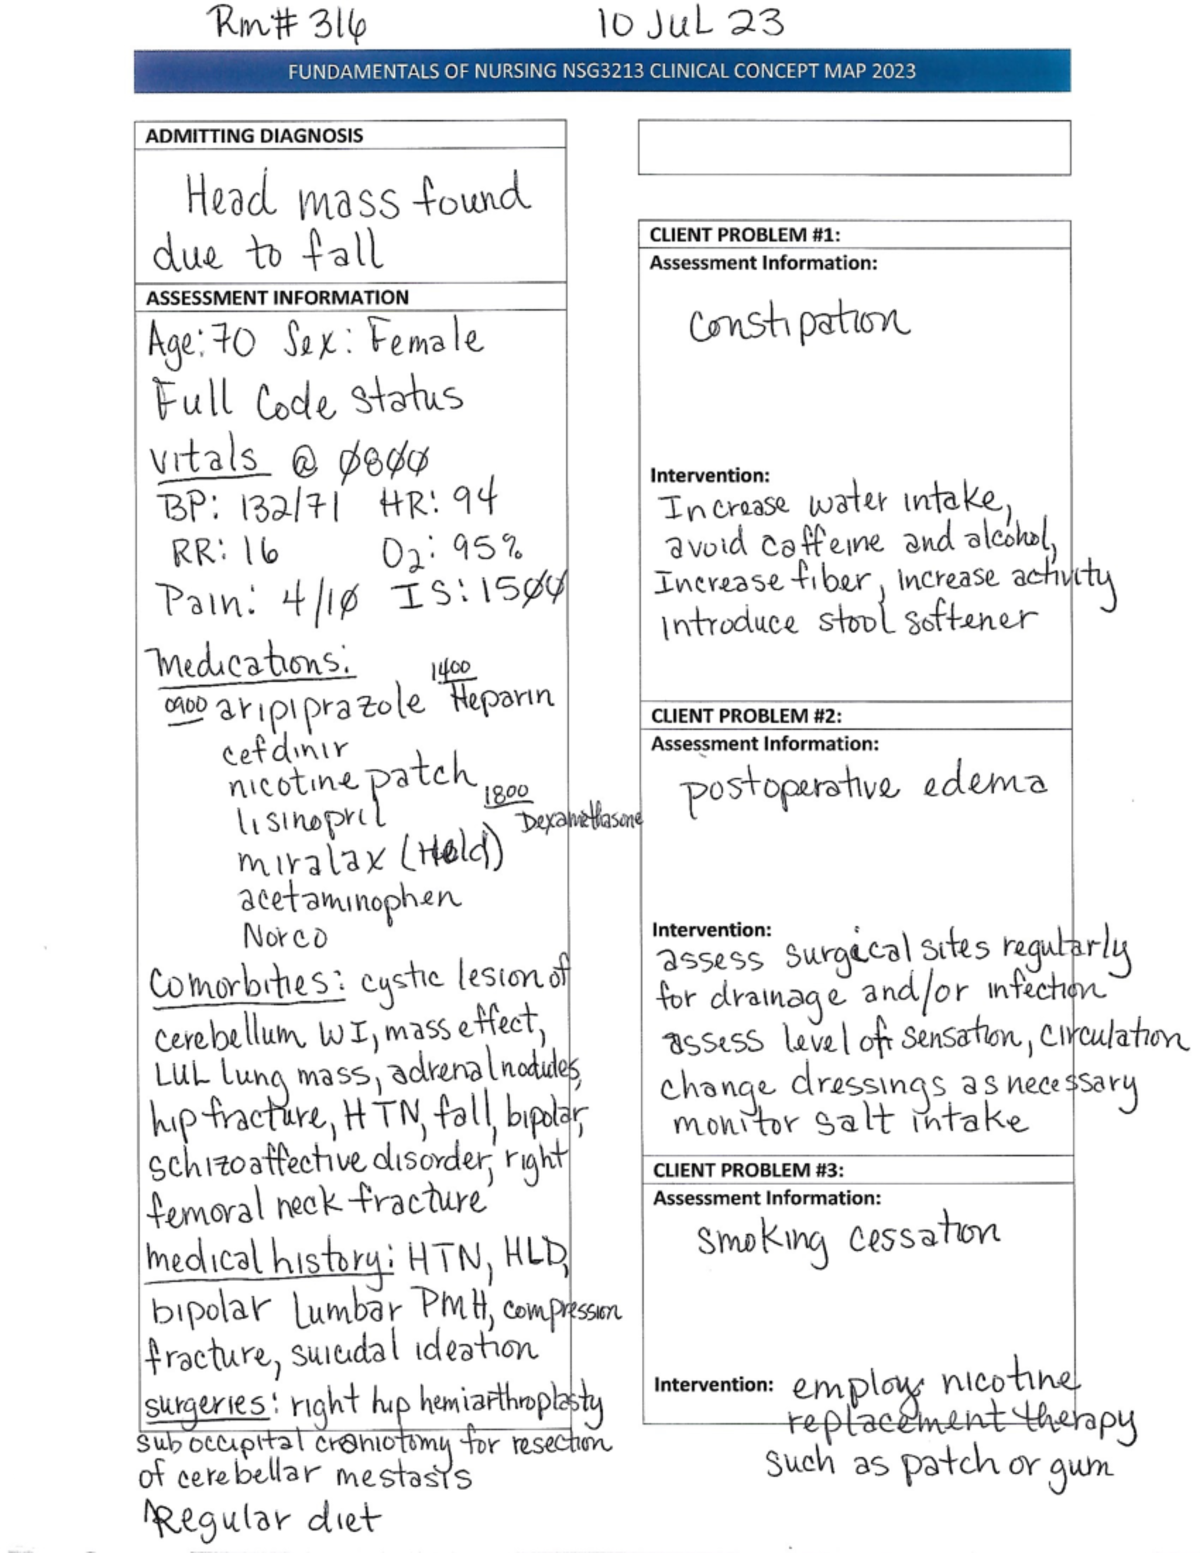 Rm# 316 10 JUL 23
FUNDAMENTALS OF NURSING NSG3213 CLINICAL CONCEPT MAP 2023
ADMITTING DIAGNOSIS
Head mass found
due to fall
ASSESSMENT INFORMATION
Age: 70 Sex: Female
Full Code status
vitals @ 0800
BP: 132/71 HR: 94
RR: 16 O2: 95%
Pain: 4/10 IS: 1500
Medications:
1400
0900 aripiprazole Heparin
cefdinir
nicotine patch
1800
lisinopril Dexamethasone
miralax (Held)
acetaminophen
Norco
Comorbities: cystic lesion of
cerebellum WI, mass effect,
LUL lung mass, adrenal nodules,
hip fracture, HTN, fall, bipolar,
schizoaffective disorder, right
femoral neck fracture
medical history: HTN, HLD,
bipolar Lumbar PMH, compression
fracture, suicidal ideation
surgeries: right hip hemiarthroplasty
sub occipital craniotomy for resection
of cerebellar mestasis
Regular diet
CLIENT PROBLEM #1:
Assessment Information:
Constipation
Intervention:
Increase water intake,
avoid caffeine and alcohol,
Increase fiber, increase activity
introduce stool softener
CLIENT PROBLEM #2:
Assessment Information:
postoperative edema
Intervention:
assess surgical sites regularly
for drainage and/or infection
assess level of sensation, circulation
change dressings as necessary
monitor salt intake
CLIENT PROBLEM #3:
Assessment Information:
smoking cessation
Intervention: employ nicotine
replacement therapy
such as patch or gum